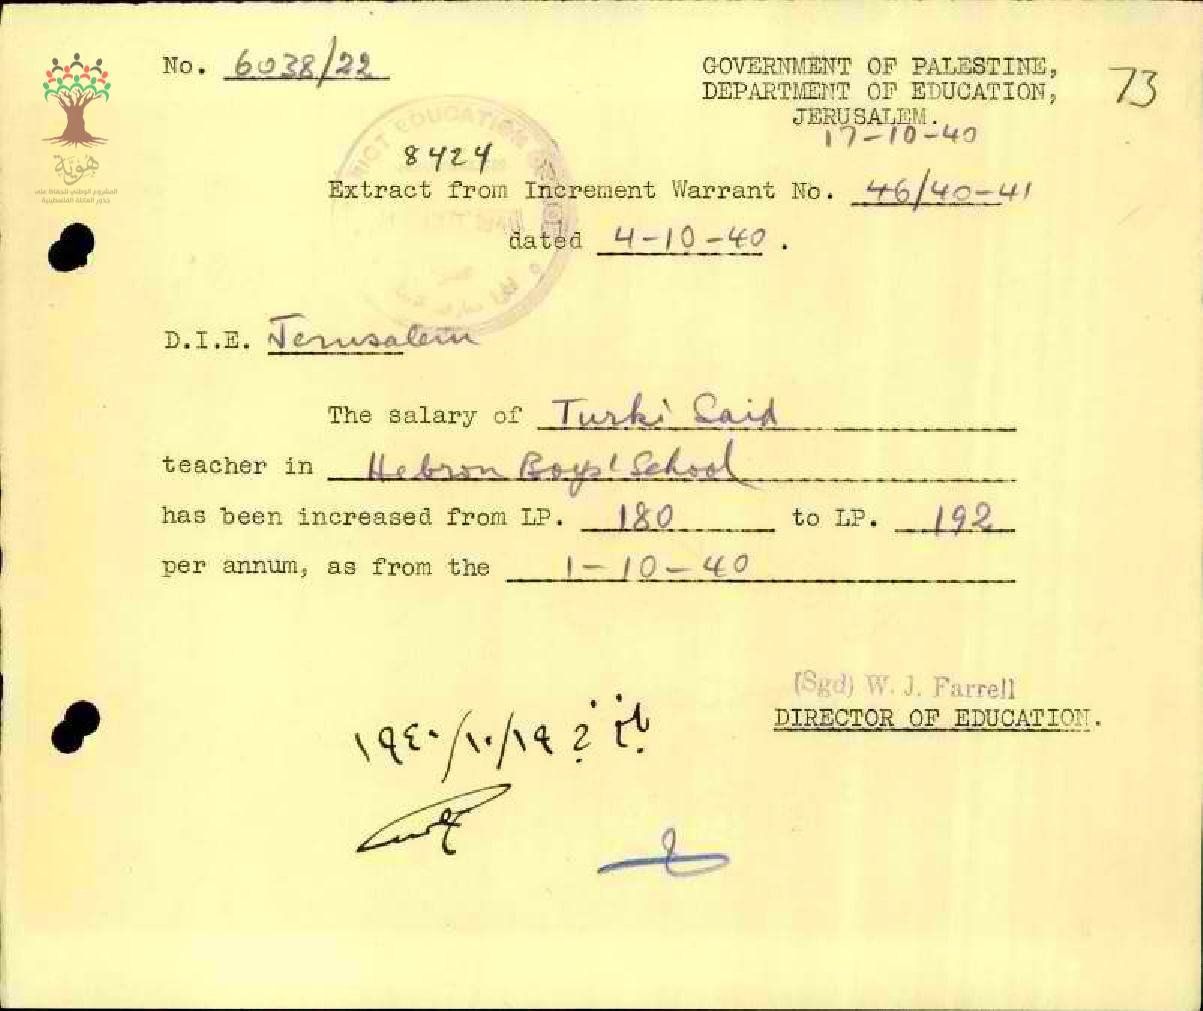 No. 6038/22
GOVERNMENT OF PALESTINE,
DEPARTMENT OF EDUCATION,
JERUSALEM.
73
17-10-40
هُوِيَّة
المشروع الوطني للحفاظ على
جذور العائلة الفلسطينية
EDUCATION
8424
Extract from Increment Warrant No. 46/40-41
dated 4-10-40.
D.I.E. Jerusalem
The salary of Turki Said
teacher in Hebron Boys' School
has been increased from LP. 180 to LP. 192
per annum, as from the 1-10-40
(Sgd) W. J. Farrell
DIRECTOR OF EDUCATION.
١٩٤٠/١٠/١٩